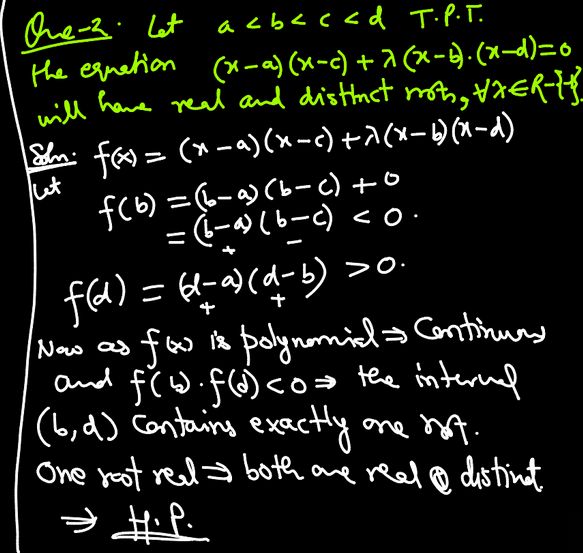 Que-2. Let a < b < c < d T.P.T.
the equation (x-a)(x-c) + λ(x-b).(x-d)=0
will have real and distinct roots, ∀λ∈R-{-1}.
Soln. f(x) = (x-a)(x-c)+λ(x-b)(x-d)
Let
f(b) = (b-a)(b-c) + 0
= (b-a)(b-c) < 0.
+ -
f(d) = (d-a)(d-b) > 0.
+ +
Now as f(x) is polynomial ⇒ Continuous
and f(b).f(d) < 0 ⇒ the interval
(b,d) contains exactly one root.
One root real ⇒ both are real & distinct.
⇒ H.P.